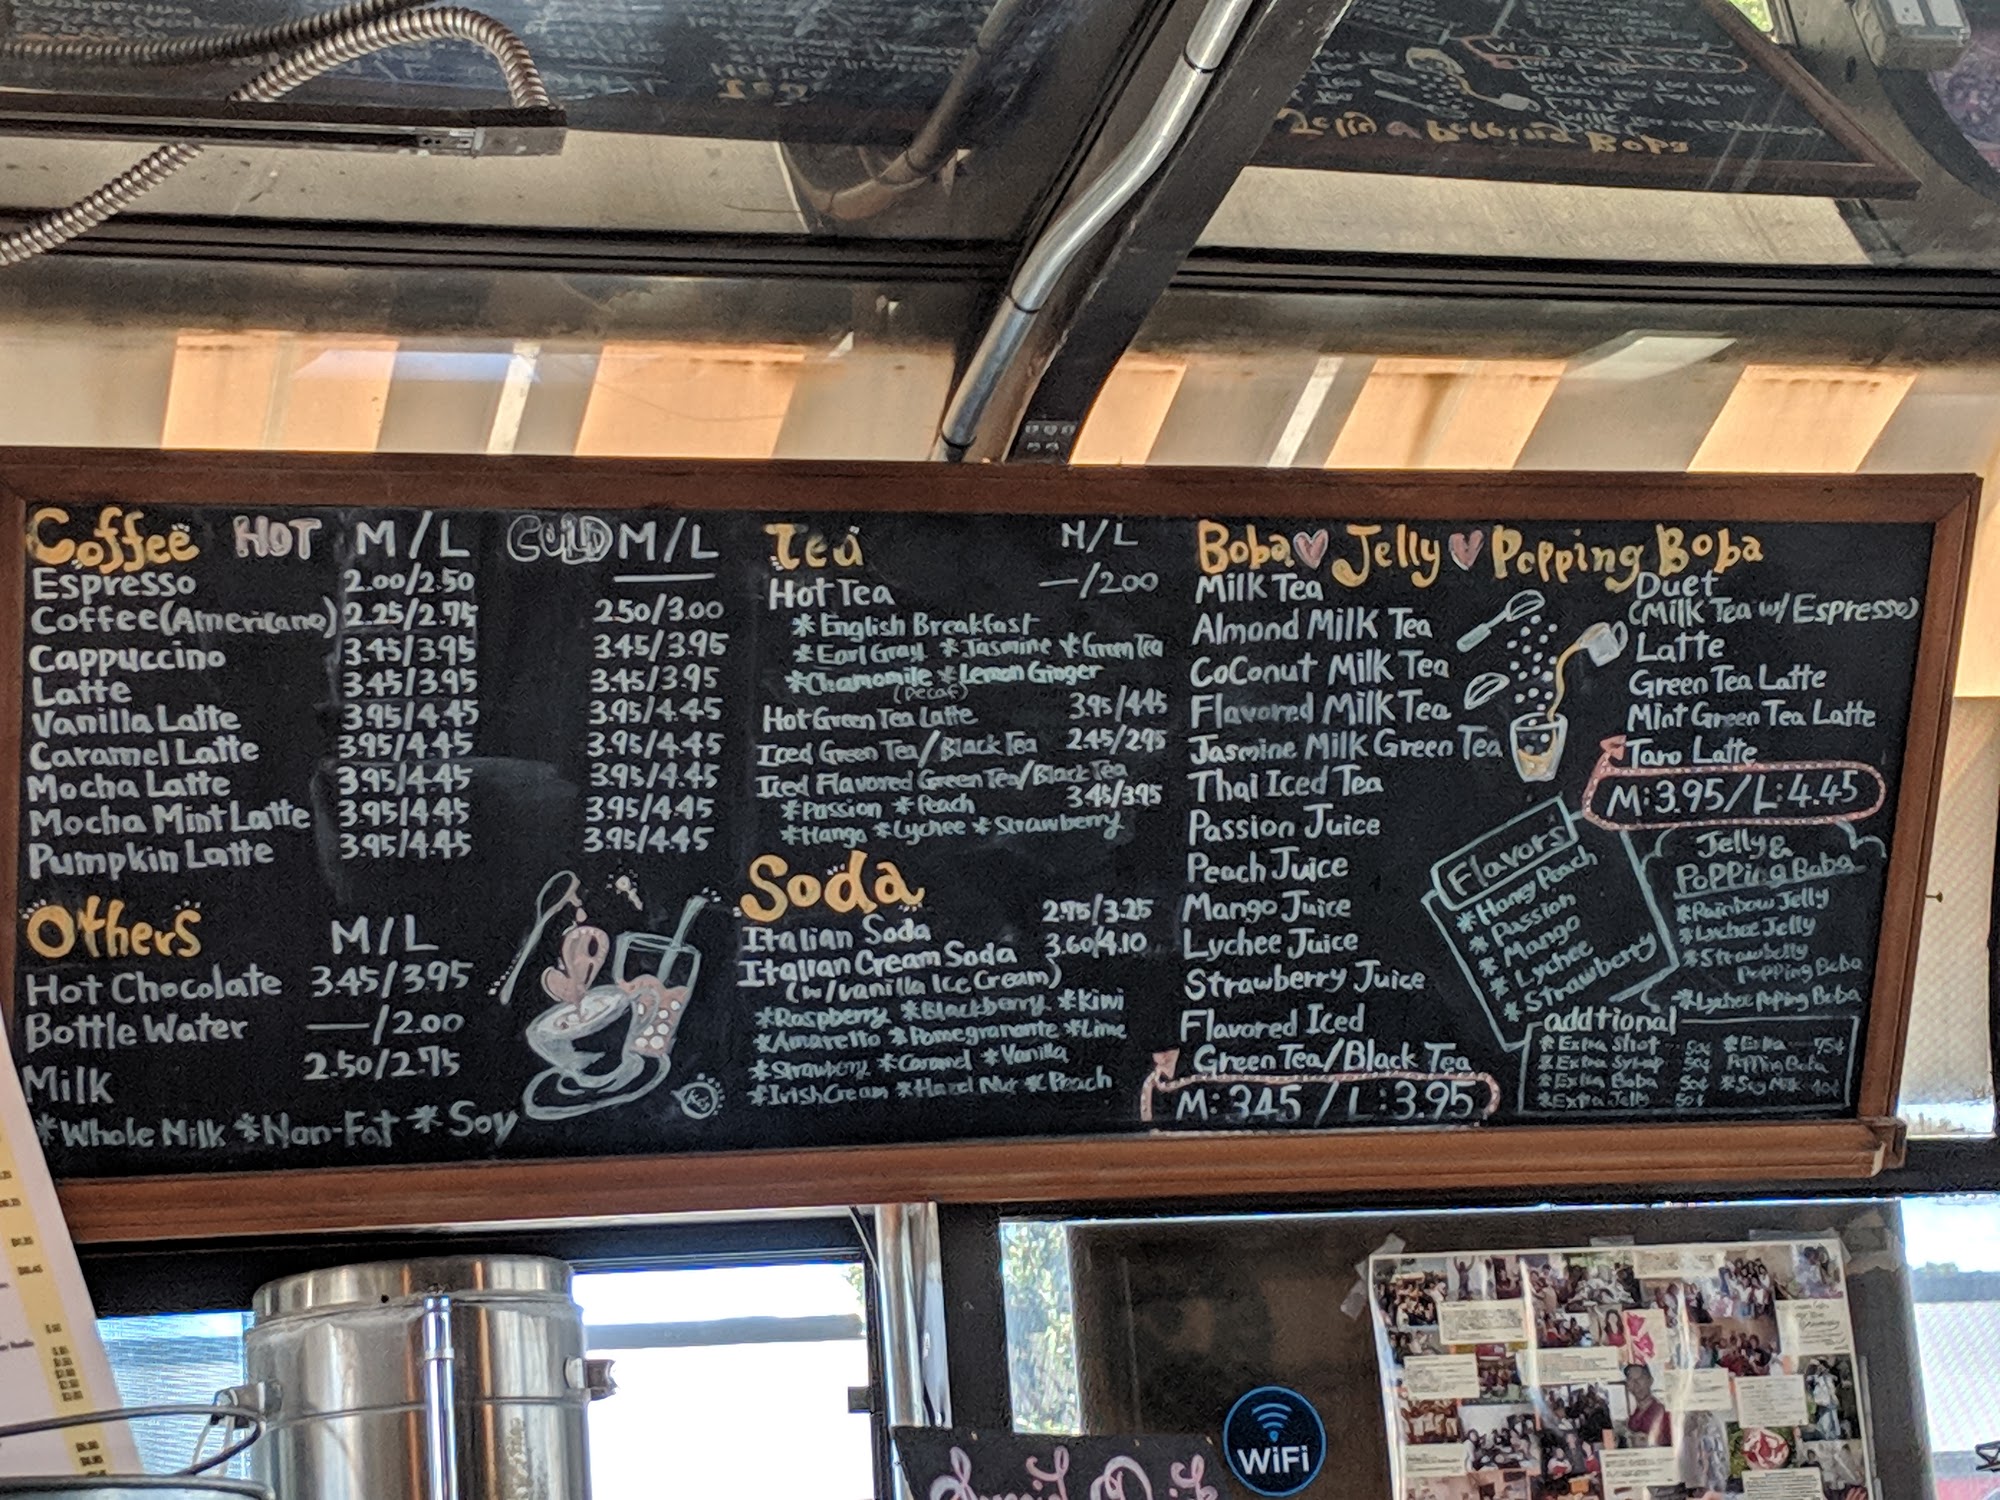 Coffee HOT M/L COLD M/L
Espresso 2.00/2.50
Coffee(Americano) 2.25/2.75 2.50/3.00
Cappuccino 3.45/3.95 3.45/3.95
Latte 3.45/3.95 3.45/3.95
Vanilla Latte 3.95/4.45 3.95/4.45
Caramel Latte 3.95/4.45 3.95/4.45
Mocha Latte 3.95/4.45 3.95/4.45
Mocha Mint Latte 3.95/4.45 3.95/4.45
Pumpkin Latte 3.95/4.45 3.95/4.45
Others M/L
Hot Chocolate 3.45/3.95
Bottle Water —/2.00
Milk 2.50/2.75
*Whole Milk *Non-Fat *Soy
Tea M/L
Hot Tea —/2.00
*English Breakfast
*Earl Gray *Jasmine *Green Tea
*Chamomile *Lemon Ginger
(Decaf)
Hot Green Tea Latte 3.95/4.45
Iced Green Tea/Black Tea 2.45/2.95
Iced Flavored Green Tea/Black Tea
*Passion *Peach 3.45/3.95
*Mango *Lychee *Strawberry
Soda
Italian Soda 2.75/3.25
Italian Cream Soda 3.60/4.10
(w/vanilla Ice Cream)
*Raspberry *Blackberry *Kiwi
*Amaretto *Pomegranante *Lime
*Strawberry *Caramel *Vanilla
*Irish Cream *Hazel Nut *Peach
Boba Jelly Popping Boba
Milk Tea
Almond Milk Tea
CoConut Milk Tea
Flavored Milk Tea
Jasmine Milk Green Tea
Thai Iced Tea
Passion Juice
Peach Juice
Mango Juice
Lychee Juice
Strawberry Juice
Flavored Iced
Green Tea/Black Tea
M: 3.45 / L: 3.95
Duet
(Milk Tea w/ Espresso)
Latte
Green Tea Latte
Mint Green Tea Latte
Taro Latte
M:3.95/L:4.45
Flavors
*Honey Peach
*Passion
*Mango
*Lychee
*Strawberry
Jelly &
Popping Boba
*Rainbow Jelly
*Lychee Jelly
*Strawbelly
Popping Boba
*Lychee Poping Boba
addtional
*Extra Shot 50¢ *Extra 75¢
*Extra Syrup 50¢ Popping Boba
*Extra Boba 50¢ *Soy Milk 40¢
*Extra Jelly 50¢
WiFi